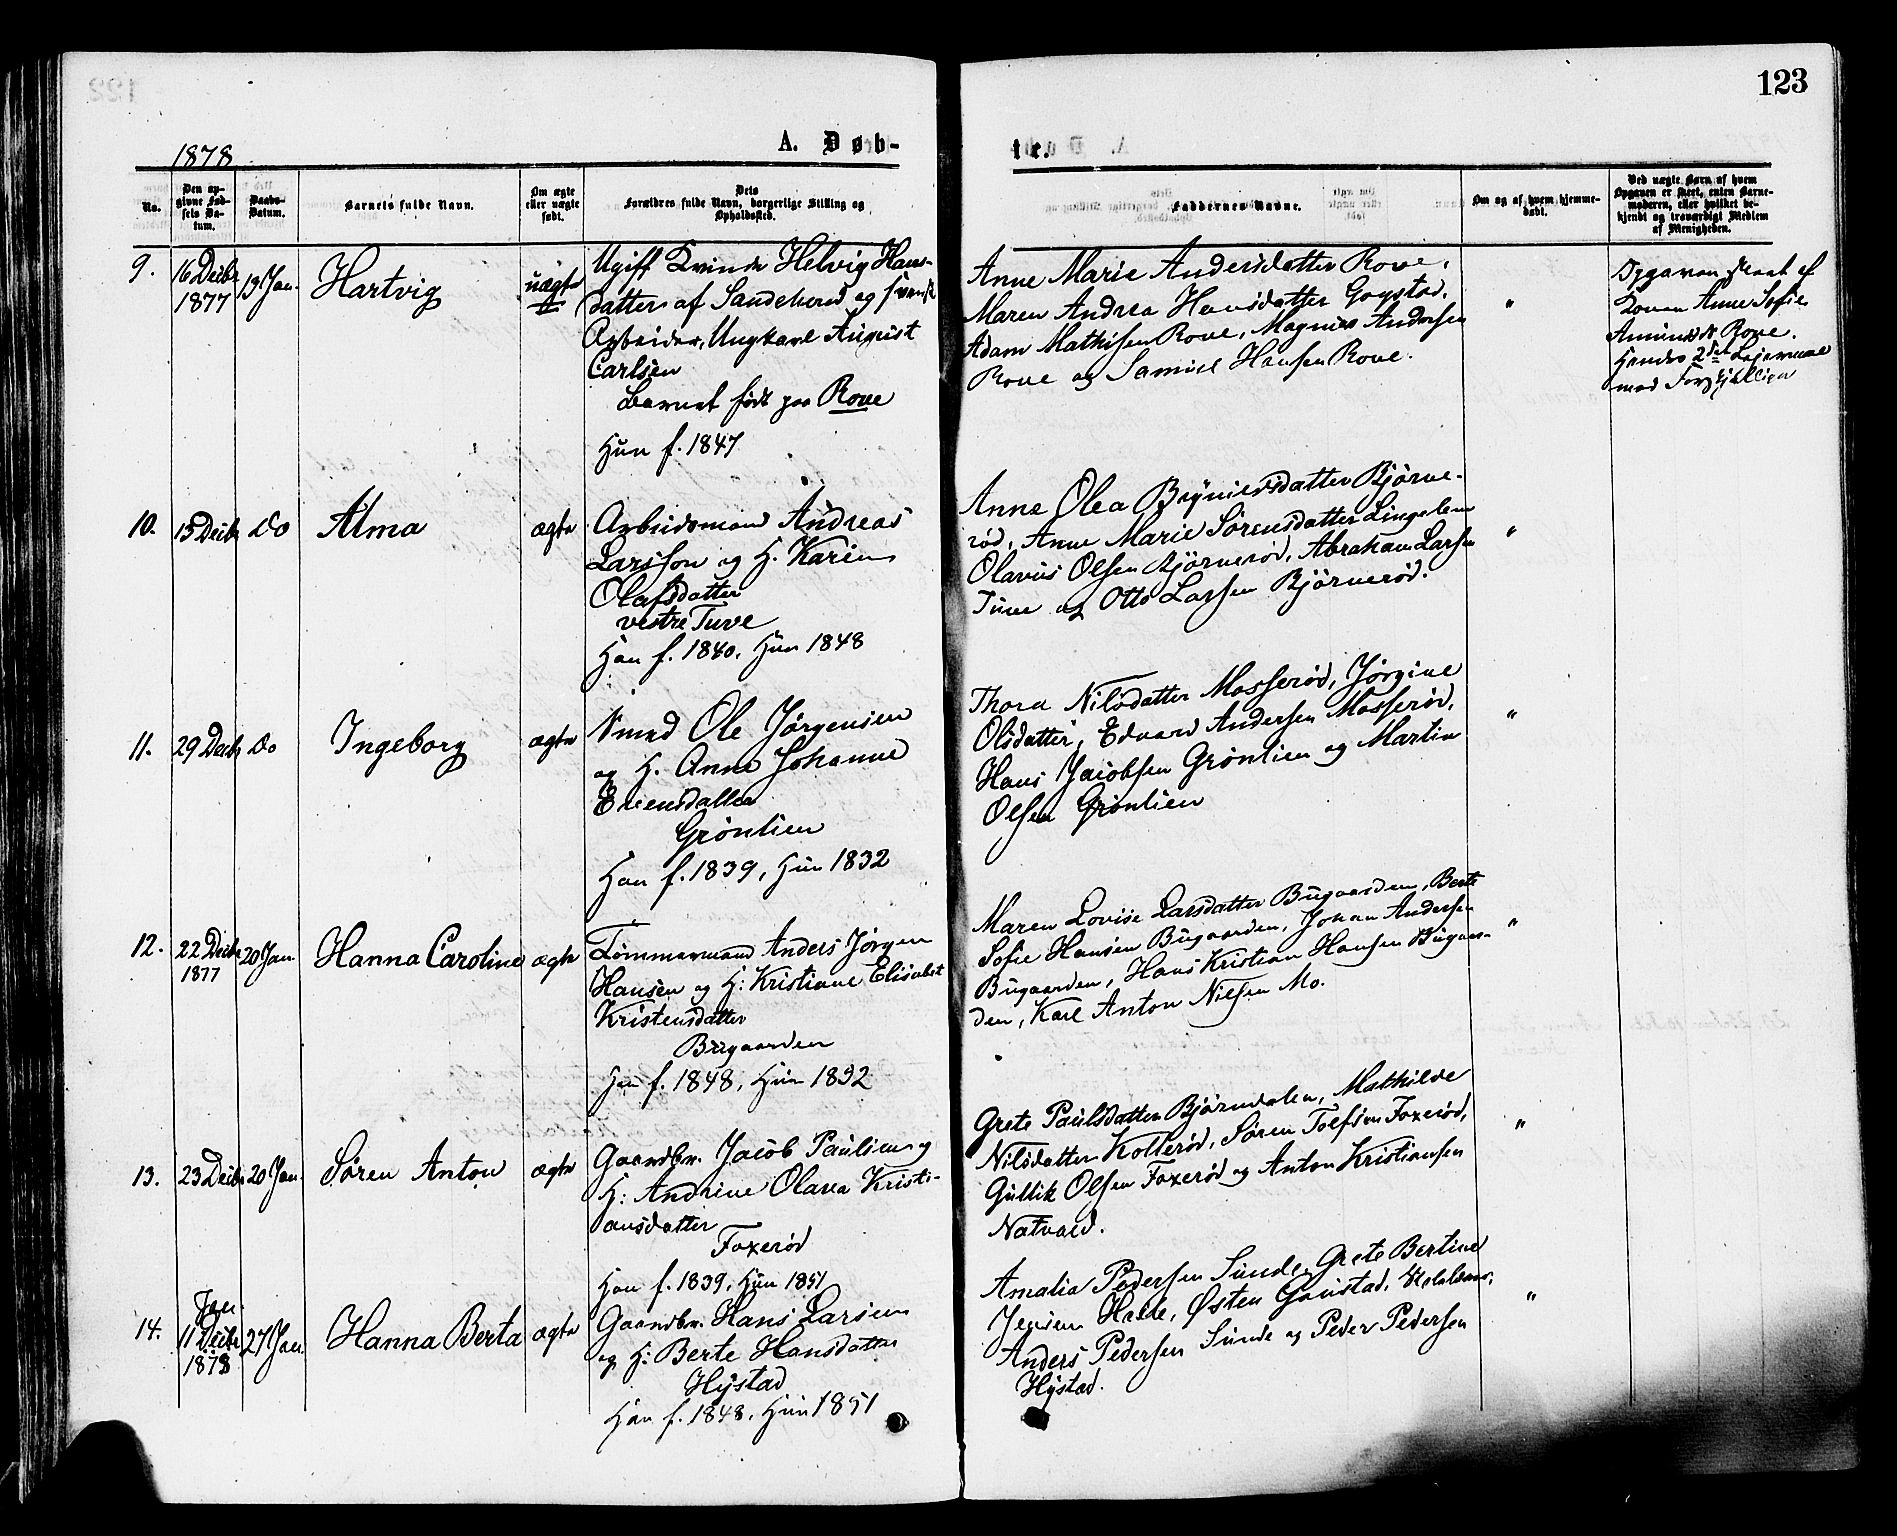 123
1878
A. Døb-
te.
No.
Den op-
givne Fød-
sels Da-
tum.
Daabs-
Datum.
Barnets fulde Navn.
Om ægte
eller uægte
født.
Dets
Forældres fulde Navn, borgerlige Stilling og
Opholdssted.
Faddernes Navne.
Om og af hvem hjemme-
døbt.
Ved uægte Børn af hvem
Opgaven er skeet, enten Barne-
moderen, eller hvilket be-
kjendt og troværdigt Medlem
af Menigheden.
9.
16 Decbr
1877
13 Jan.
Hartvig
uægte
II
Ugift Kvinde Helvig Hans-
datter af Sandeherred og svensk
Arbeider, Ungkarl August
Carlsen
Barnet født paa Rove
Hun f. 1847
Anne Marie Andersdatter Rove,
Maren Andrea Hansdatter Gogstad,
Adam Mathisen Rove, Magnus Andersen
Rove og Samuel Hansen Rove.
"
Opgaven skeet af
Konen Anne Sofie
Rove.
Hendes 2det Leiermaal
med
10.
15 Decbr
do
Alma
ægte
Arbeidsmand Andreas
Larsson og H. Karin
Olafsdatter
vestre Tuve
Han f. 1840, Hun 1848
Anne Olea Brynildsdatter Bjørne-
rød, Anne Marie Sørensdatter
Olavus Olsen Bjørnerød, Abraham Larsen
Tuve og Otto Larsen Bjørnerød.
"
11.
29 Decbr
do
Ingeborg
ægte
Smed Ole Jørgensen
og H. Anne Johanne
Evensdatter
Grønlien
Han f. 1839, Hun 1832
Thora Nilsdatter Mosserød, Jørgine
Olsdatter, Edvard Andersen Mosserød,
Hans Jacobsen Grønlien og Martin
Olsen Grønlien
"
12.
22 Decbr
1877
20 Jan
Hanna Caroline
ægte
Tømmermand Anders Jørgen
Hansen og H: Kristiane Elisabet
Kristensdatter
Bugaarden
Han f. 1848, Hun 1852
Maren Lovise Larsdatter Bugaarden, Berte
Sofie Hansen Bugaarden, Johan Andersen
Bugaarden, Hans Kristian Hansen Bugaar-
den, Karl Anton Nilsen Mo.
"
13.
23 Decbr
20 Jan
Søren Anton
ægte
Gaardbr. Jacob Paulsen og
H: Andrine Olava Kristi-
ansdatter
Foxerød
Han f. 1839, Hun 1851
Grete Paulsdatter Bjørndalen, Mathilde
Nilsdatter Kotterød, Søren Tolfsen Foxerød,
Gullik Olsen Foxerød og Anton Kristiansen
Natvald.
"
14.
Jan.
11 Decbr
1878
27 Jan
Hanna Berta
ægte
Gaardbr. Hans Larsen
og H: Berte Hansdatter
Hystad
Han f. 1848, Hun 1851
Amalia Pedersen Sunde, Grete Bertine
Jensen Østen Gaustad,
Anders Pedersen Sunde og Peder Pedersen
Hystad.
"